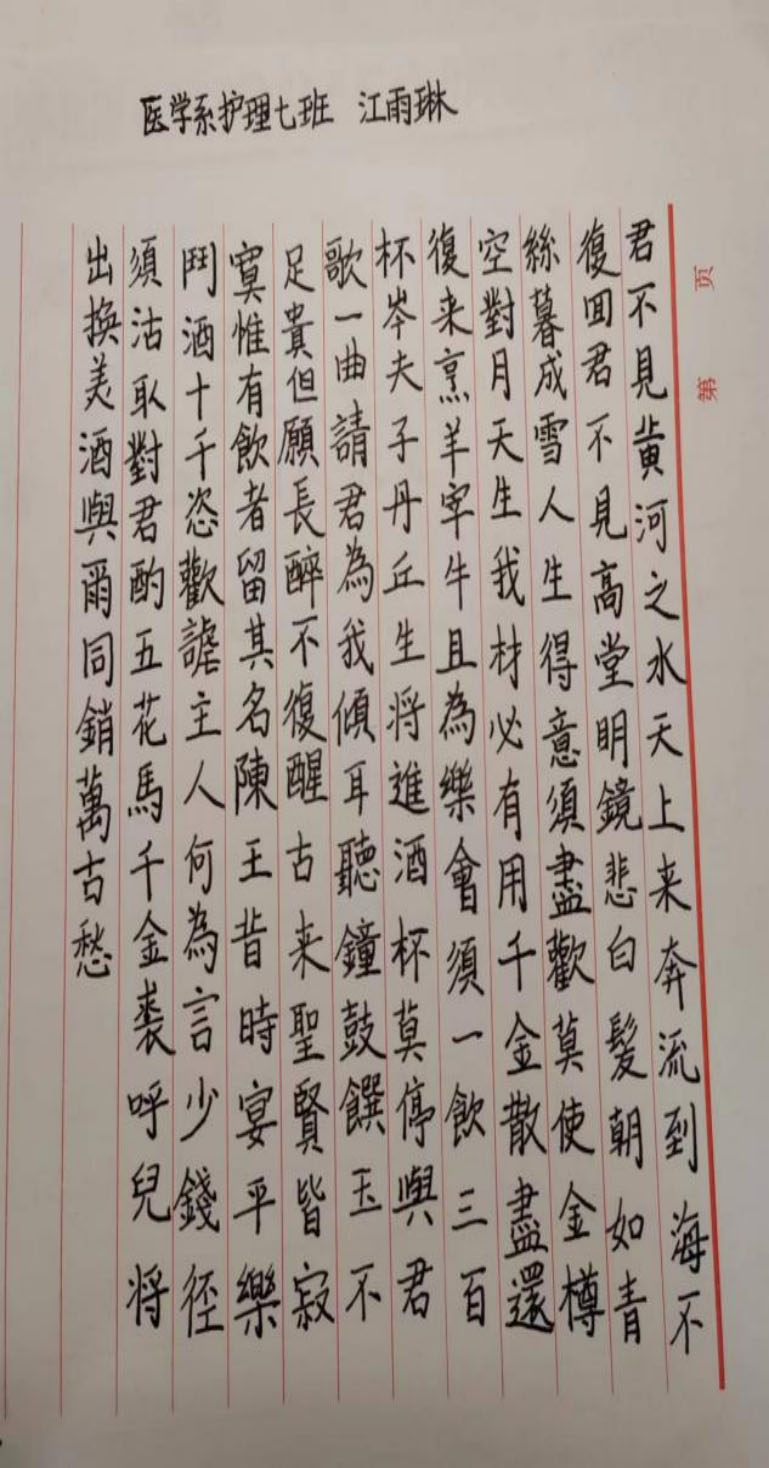 医学系护理七班 江雨琳
第 页
君不見黄河之水天上来奔流到海不
復回君不見高堂明鏡悲白髮朝如青
絲暮成雪人生得意須盡歡莫使金樽
空對月天生我材必有用千金散盡還
復来烹羊宰牛且為樂會須一飲三百
杯岑夫子丹丘生将進酒杯莫停與君
歌一曲請君為我傾耳聽鐘鼓饌玉不
足貴但願長醉不復醒古来聖賢皆寂
寞惟有飲者留其名陳王昔時宴平樂
鬥酒十千恣歡謔主人何為言少錢径
須沽取對君酌五花馬千金裘呼兒将
出換美酒與爾同銷萬古愁